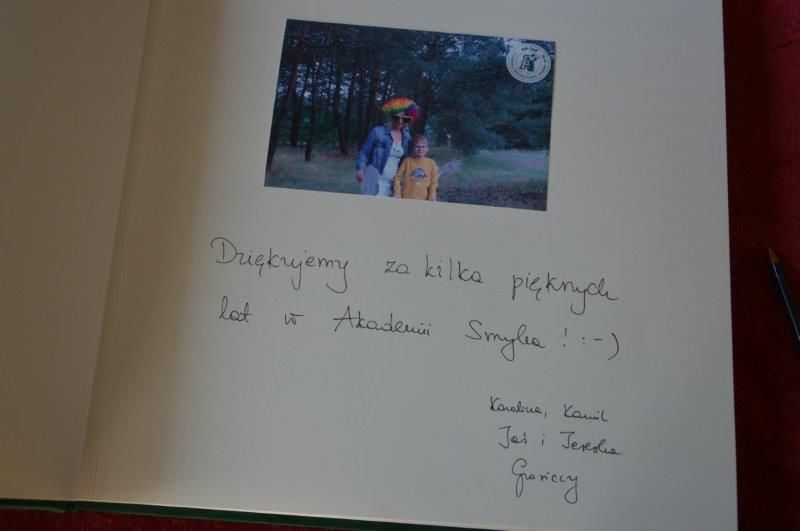 Dziękujemy za kilka pięknych
lat w Akademii Smyka! :-)
Karolina, Kamil
Jaś i Tereska